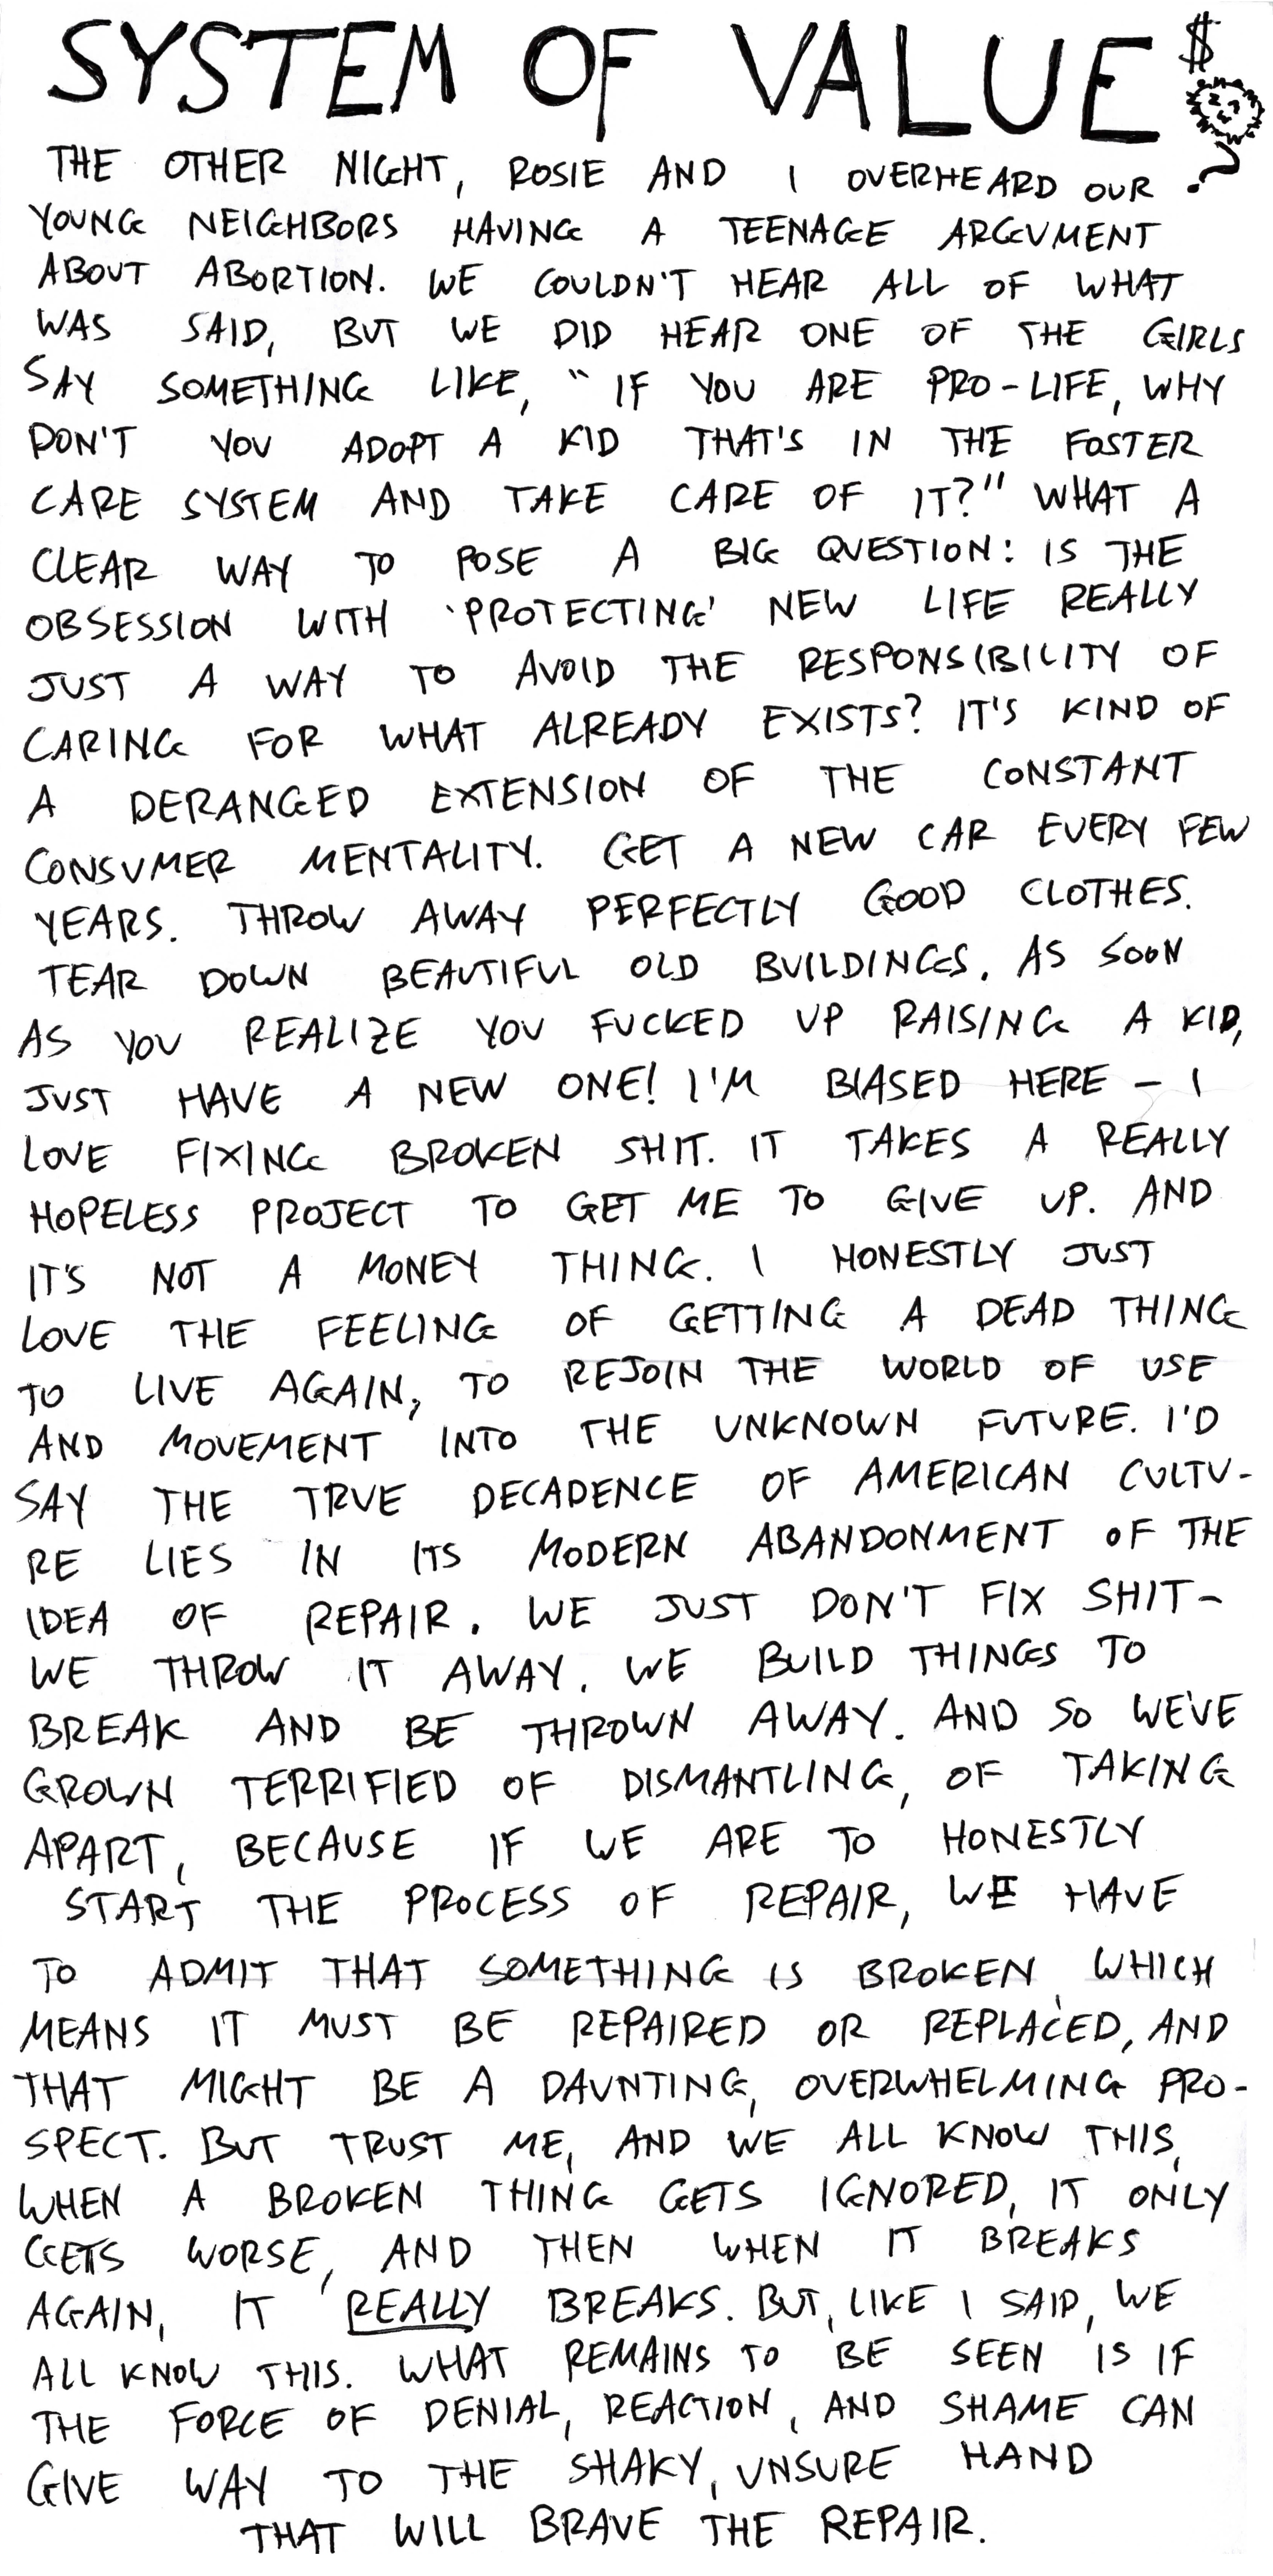 SYSTEM OF VALUE $?
THE OTHER NIGHT, ROSIE AND I OVERHEARD OUR
YOUNG NEIGHBORS HAVING A TEENAGE ARGUMENT
ABOUT ABORTION. WE COULDN'T HEAR ALL OF WHAT
WAS SAID, BUT WE DID HEAR ONE OF THE GIRLS
SAY SOMETHING LIKE, "IF YOU ARE PRO-LIFE, WHY
DON'T YOU ADOPT A KID THAT'S IN THE FOSTER
CARE SYSTEM AND TAKE CARE OF IT?" WHAT A
CLEAR WAY TO POSE A BIG QUESTION: IS THE
OBSESSION WITH 'PROTECTING' NEW LIFE REALLY
JUST A WAY TO AVOID THE RESPONSIBILITY OF
CARING FOR WHAT ALREADY EXISTS? IT'S KIND OF
A DERANGED EXTENSION OF THE CONSTANT
CONSUMER MENTALITY. GET A NEW CAR EVERY FEW
YEARS. THROW AWAY PERFECTLY GOOD CLOTHES.
TEAR DOWN BEAUTIFUL OLD BUILDINGS. AS SOON
AS YOU REALIZE YOU FUCKED UP RAISING A KID,
JUST HAVE A NEW ONE! I'M BIASED HERE – I
LOVE FIXING BROKEN SHIT. IT TAKES A REALLY
HOPELESS PROJECT TO GET ME TO GIVE UP. AND
IT'S NOT A MONEY THING. I HONESTLY JUST
LOVE THE FEELING OF GETTING A DEAD THING
TO LIVE AGAIN, TO REJOIN THE WORLD OF USE
AND MOVEMENT INTO THE UNKNOWN FUTURE. I'D
SAY THE TRUE DECADENCE OF AMERICAN CULTU-
RE LIES IN ITS MODERN ABANDONMENT OF THE
IDEA OF REPAIR. WE JUST DON'T FIX SHIT –
WE THROW IT AWAY. WE BUILD THINGS TO
BREAK AND BE THROWN AWAY. AND SO WE'VE
GROWN TERRIFIED OF DISMANTLING, OF TAKING
APART, BECAUSE IF WE ARE TO HONESTLY
START THE PROCESS OF REPAIR, WE HAVE
TO ADMIT THAT SOMETHING IS BROKEN, WHICH
MEANS IT MUST BE REPAIRED OR REPLACED, AND
THAT MIGHT BE A DAUNTING, OVERWHELMING PRO-
SPECT. BUT TRUST ME, AND WE ALL KNOW THIS,
WHEN A BROKEN THING GETS IGNORED, IT ONLY
GETS WORSE, AND THEN WHEN IT BREAKS
AGAIN, IT REALLY BREAKS. BUT, LIKE I SAID, WE
ALL KNOW THIS. WHAT REMAINS TO BE SEEN IS IF
THE FORCE OF DENIAL, REACTION, AND SHAME CAN
GIVE WAY TO THE SHAKY, UNSURE HAND
THAT WILL BRAVE THE REPAIR.